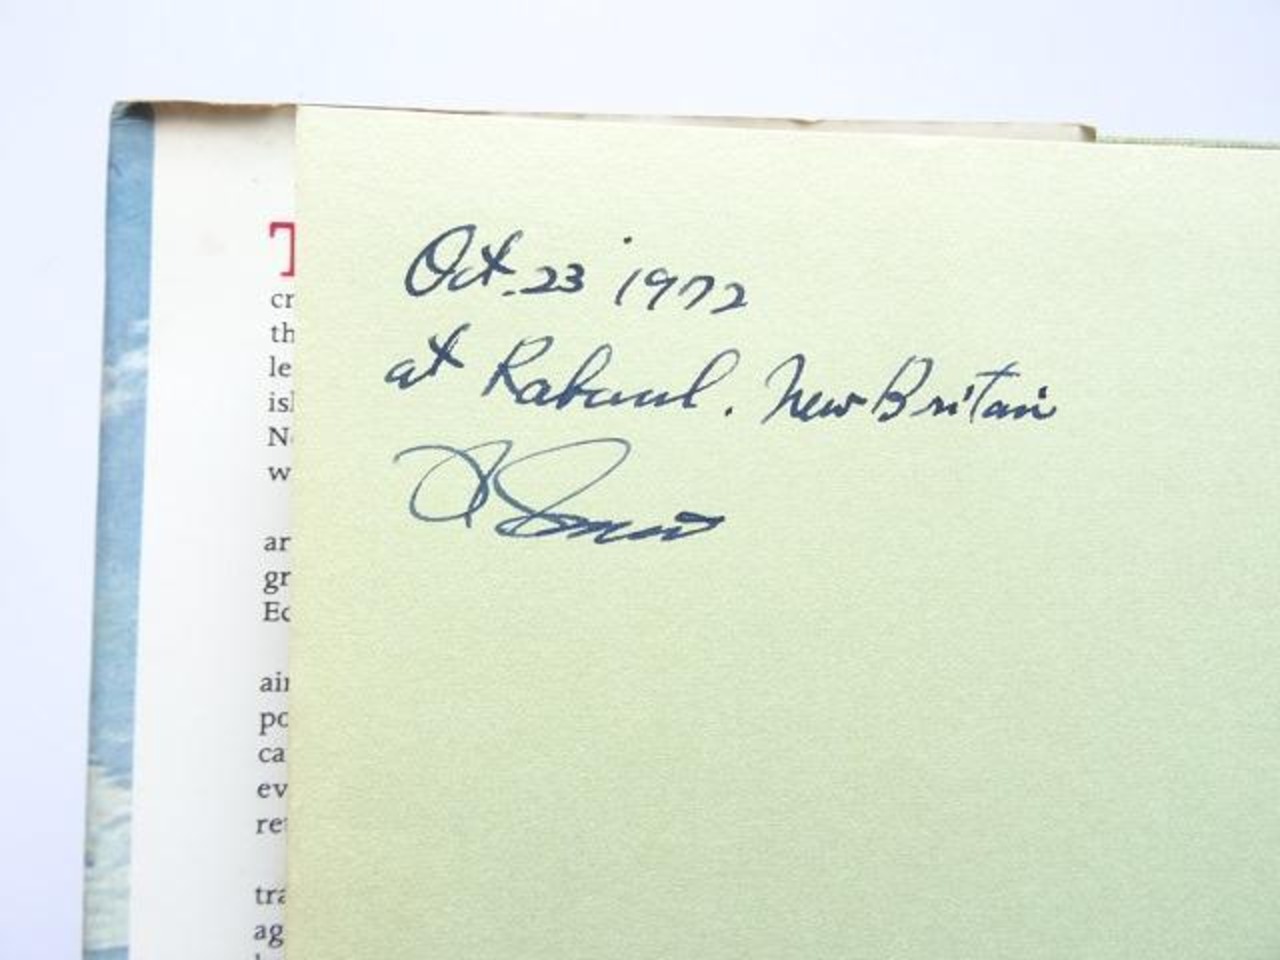 T
cr
th
le
isl
N
w
ar
gr
Ec
air
po
ca
ev
re
tra
ag
Oct. 23 1972
at Rabaul. New Britain